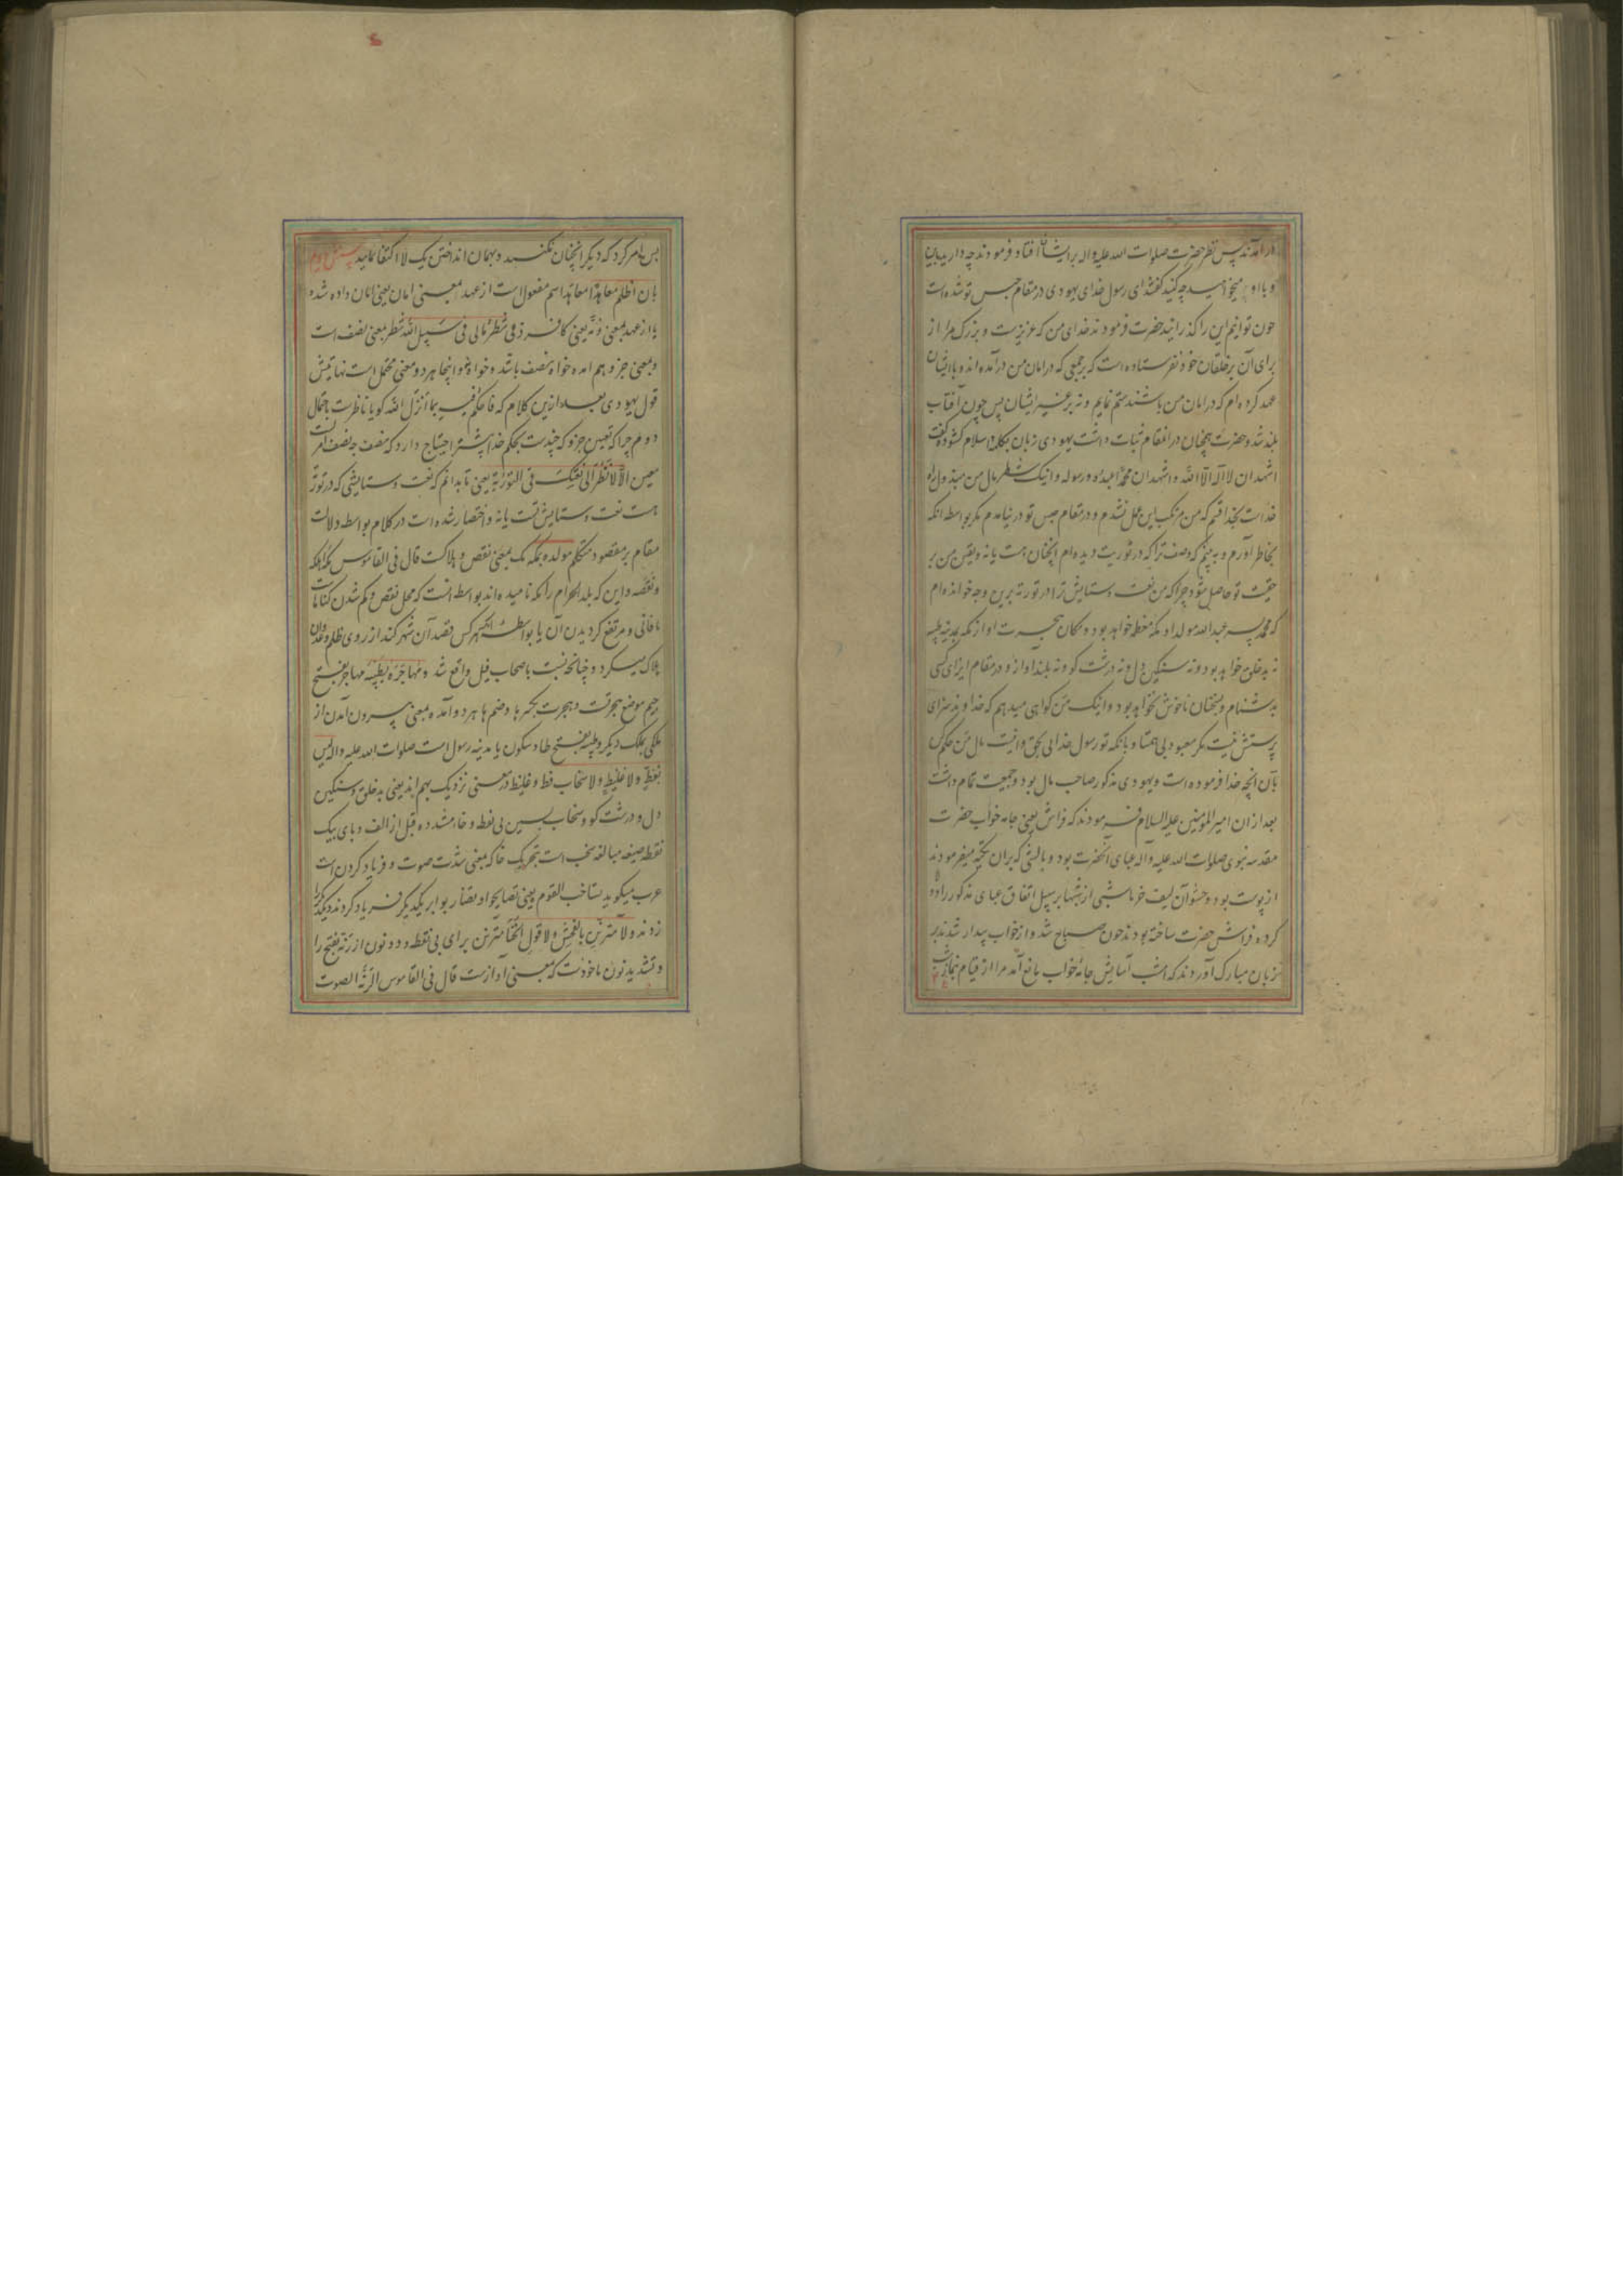 در آمدند پس نظر حضرت صلوات الله علیه واله بر ایشان افتاد و فرمودند چه دارید با اینها
و با او میخواهید چه کنید گفتند ای رسول خدای یهودی در مقام حبس تو شده است
چون توانیم این را گذرانید حضرت فرمودند خدای من که عزیزست و بزرگ مرا از
برای آن بر خلقان خود نفرستاده است که بر جمعی که در امان من درآمده اند و با ایشان
عهد کرده ام که در امان من باشند ستم نمایم و نه بر غیر ایشان پس چون آفتاب
بلند شد و حضرت همچنان در انمقام ثبات داشت یهودی زبان بکلمه اسلام گشوده گفت
اشهد ان لا اله الا الله و اشهد ان محمدا عبده و رسوله و اینک شطر مال من مبذول راه
خداست بخدا قسم که من مرتکب این عمل نشدم و در مقام حبس تو در نیامدم مگر بواسطه انکه
بخاطر آورم و به بینم که وصف ترا که در توریت دیده ام انچنان هست یا نه و یقین من بر
حقیت تو حاصل شود چرا که من نعت و ستایش ترا در توریة برین وجه خوانده ام
که محمد پسر عبدالله مولد او مکه معظمه خواهد بود و مکان هجرت او از مکه بمدینه طیبه
نه بدخلق خواهد بود و نه سنگین دل و نه درشت گو و نه بلند آواز و در مقام ایزای کسی
بدشنام و سخنان ناخوش نخواهد بود و اینک من گواهی میدهم که خداوند سزای
پرستش نیست مگر معبود بی همتا و بانکه تو رسول خدایی بحق و اینست مال من حکم کن
بآن انچه خدا فرموده است و یهودی مذکور صاحب مال بود و جمعیت تمام داشت
بعد از ان امیر المومنین علیه السلام فرمودند که فراش یعنی جامه خواب حضرت
مقدسه نبوی صلوات الله علیه واله عبای آنحضرت بود و بالشی که بران تکیه میفرمودند
از پوست بود و حشو آن لیف خرما شبی از شبها بر سبیل اتفاق عبای مذکور را دو تا
کرده فراش حضرت ساخته بودند چون صباح شد و از خواب بیدار شدند بر
زبان مبارک آوردند که امشب آسایش جامه خواب مانع آمد مرا از قیام نماز شب
پس امر کرد که دیگر انچنان نکنند و بهمان انداختن یک لا اکتفا نمایند
بان اظلم معاهدا معاهد اسم مفعول است از عهد بمعنی امان یعنی امان داده شده
یا از عهد بمعنی ذمه یعنی کافر ذمی شطر مالی فی سبیل الله شطر بمعنی نصف است
و بمعنی جزو هم امده خواه نصف باشد و خواه نه و اینجا هر دو معنی محتمل است نهایتش
قول یهودی بعد ازین کلام که فاحکم فیه بما انزل الله گویا ناظرست باحتمال
دوم چرا که تعیین جزو که چندست بحکم خدا بیشتر احتیاج دارد که نصف چه نصف امریست
معین الا لانظر الی نعتک فی التوریة یعنی تا بدانم که نعت و ستایشی که در توریة
هست نعت و ستایش تست یا نه و اختصار شده است در کلام بواسطه دلالت
مقام بر مقصود متکلم مولده بمکه مک بمعنی نقص و هلاکست قال فی القاموس مکه اهلکه
و نقصه و این که بلد الحرام را مکه نامیده اند بواسطه انست که محل نقص و کم شدن گناهانست
یا فانی و مرتفع گردیدن آن یا بواسطه انکه هر کس قصد آن شهر کند از روی ظلم و عدوان
هلاک میگردد چنانچه نسبت باصحاب فیل واقع شد و مهاجره بطیبه مهاجر بفتح
جیم موضع هجرتست و هجرت بکسر ها و ضم ها هر دو آمده بمعنی بیرون آمدن از
ملکی بملک دیگر و طیبه بفتح طا و سکون یا مدینه رسول است صلوات الله علیه واله لیس
بفظ ولا غلیظ ولا سخاب فظ و غلیظ در معنی نزدیک بهم اند یعنی بدخلق و سنگین
دل و درشت گو و سخاب بسین بی نقطه و خاء مشدده قبل از الف و بای یک
نقطه صیغه مبالغه سخب است بتحریک خا که بمعنی شدت صوت و فریاد کردن است
عرب میگوید تساخب القوم یعنی تصایحوا و تضاربوا بر یکدیگر فریاد کردند و یکدیگر را
زدند ولا مترنن بالفحش ولا قول الخنا مترنن برای بی نقطه و دو نون از رنه بفتح را
و تشدید نون ماخوذست که بمعنی آوازست قال فی القاموس الرنة الصوت